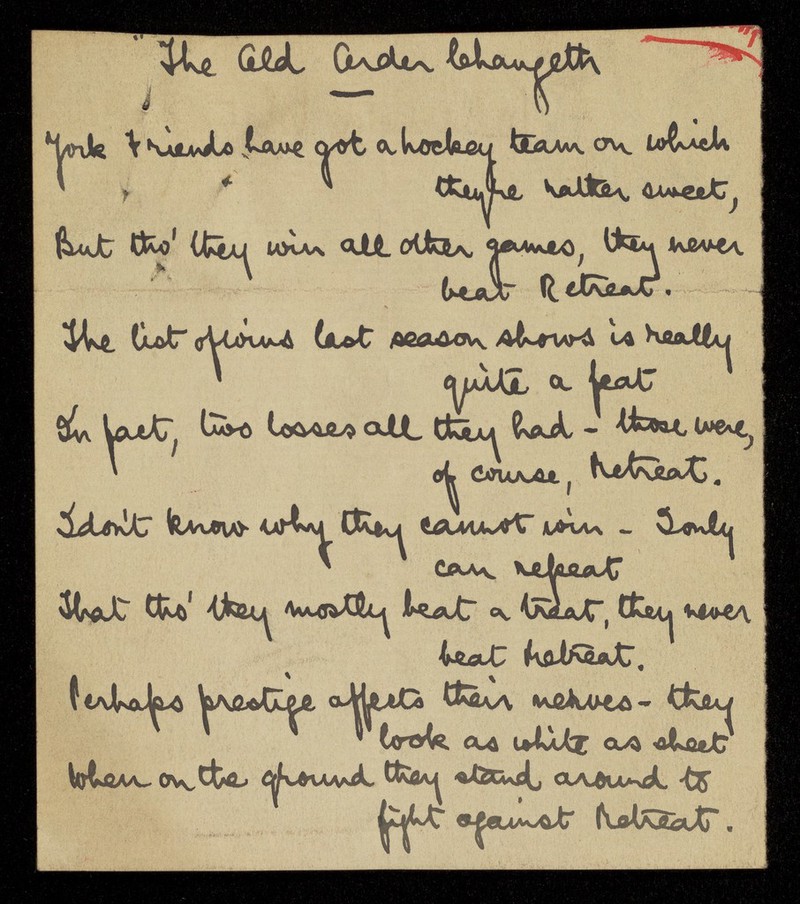 "The Old Order Changeth
York Friends have got a hockey team on which
they're rather sweet,
But tho' they win all other games, they never
beat Retreat.
The list of wins last season shows is really
quite a feat
In fact, two losses all they had - those were,
of course, Retreat.
I don't know why they cannot win - I only
can repeat
That tho' they mostly beat a treat, they never
beat Retreat.
Perhaps prestige affects their nerves - they
look as white as sheet
When on the ground they stand around to
fight against Retreat.